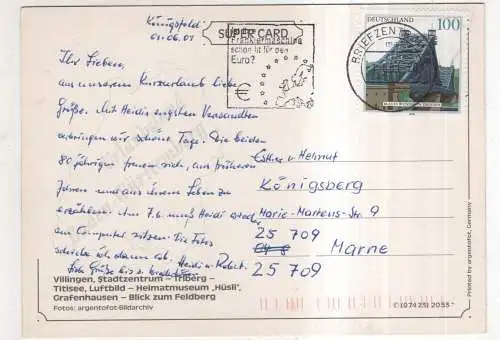 Königsfeld
01.06.01
SUPER CARD
Frankiermaschine
schon fit für den
Euro?
€
DEUTSCHLAND
100
BRIEFZENTR
Ihr Lieben,
aus unserem Kurzurlaub liebe
Grüße. Mit Heidis engsten Verwandten
verbringen wir schöne Tage. Die beiden
80 jährigen freuen sich, aus früheren
Jahren und aus ihrem Leben zu
erzählen. Am 7.6. muß Heidi wieder
am Computer sitzen. Die Fotos
schreibe ich dann ab. Heidi u. Robert.
Grüße bis
Esther u. Helmut
Königsberg
Marie-Martens-Str. 9
25 709
Marne
25 709
Villingen, Stadtzentrum – Triberg –
Titisee, Luftbild – Heimatmuseum „Hüsli",
Grafenhausen – Blick zum Feldberg
Fotos: argentofot-Bildarchiv
Printed by argentofot, Germany